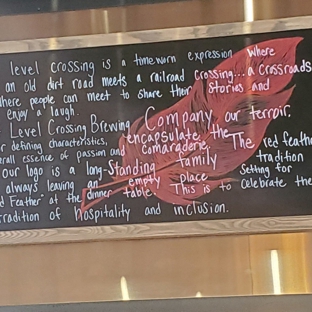 level crossing is a timeworn expression where
an old dirt road meets a railroad crossing...a crossroads
where people can meet to share their stories and
enjoy a laugh.
Level Crossing Brewing Company our terroir,
r defining characteristics, encapsulate the
erall essence of passion and camaraderie, The red feathe
our logo is a long-standing family tradition
always leaving an empty place setting for
d Feather" at the dinner table. This is to celebrate the
radition of hospitality and inclusion.